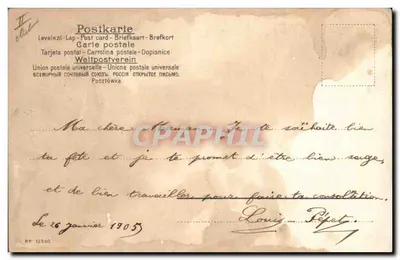 Postkarte
Levelezö-Lap - Post card - Briefkaart - Brefkort
Carte postale
Tarjeta postal - Cartolina postale - Dopisnice
Weltpostverein
Union postale universelle - Unione postale universale
ВСЕМІРНЫЙ ПОЧТОВЫЙ СОЮЗЪ. РОССІЯ ОТКРЫТОЕ ПИСЬМО.
Pocztówka
Ma chère Maman, Je te souhaite bien
ta fête et je te promet d'être bien sage,
et de bien travailler pour faire ta consolation.
Le 26 janvier 1905
Louis Pépet
CPARAMA